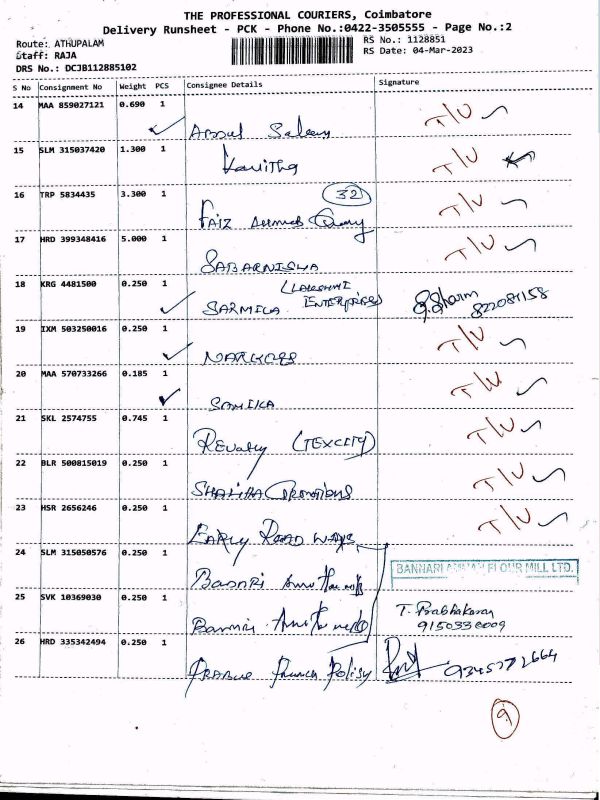 THE PROFESSIONAL COURIERS, Coimbatore
Delivery Runsheet - PCK - Phone No.:0422-3505555 - Page No.:2
Route: ATHUPALAM
RS No.: 1128851
Staff: RAJA
RS Date: 04-Mar-2023
DRS No.: DCJB112885102
S No Consignment No Weight PCS Consignee Details Signature
14 MAA 859027121 0.690 1
Abdul Saleem T/U
15 SLM 315037420 1.300 1
Kavitha T/U
16 TRP 5834435 3.300 1 32
FAIZ T/U
17 HRD 399348416 5.000 1
SABARNISHA T/U
18 KRG 4481500 0.250 1
(LAKSHMI ENTERPRISES)
SARMILA
19 IXM 503250016 0.250 1
T/U
20 MAA 570733266 0.185 1
SAMIKA T/U
21 SKL 2574755 0.745 1
(TEXCITY) T/U
22 BLR 500815019 0.250 1
T/U
23 HSR 2656246 0.250 1
EARLY ROAD WAYS T/U
24 SLM 315050576 0.250 1
BANNARI AMMAN FLOUR MILL LTD.
25 SVK 10369030 0.250 1
T. Prabhakaran
26 HRD 335342494 0.250 1
9345772664
9